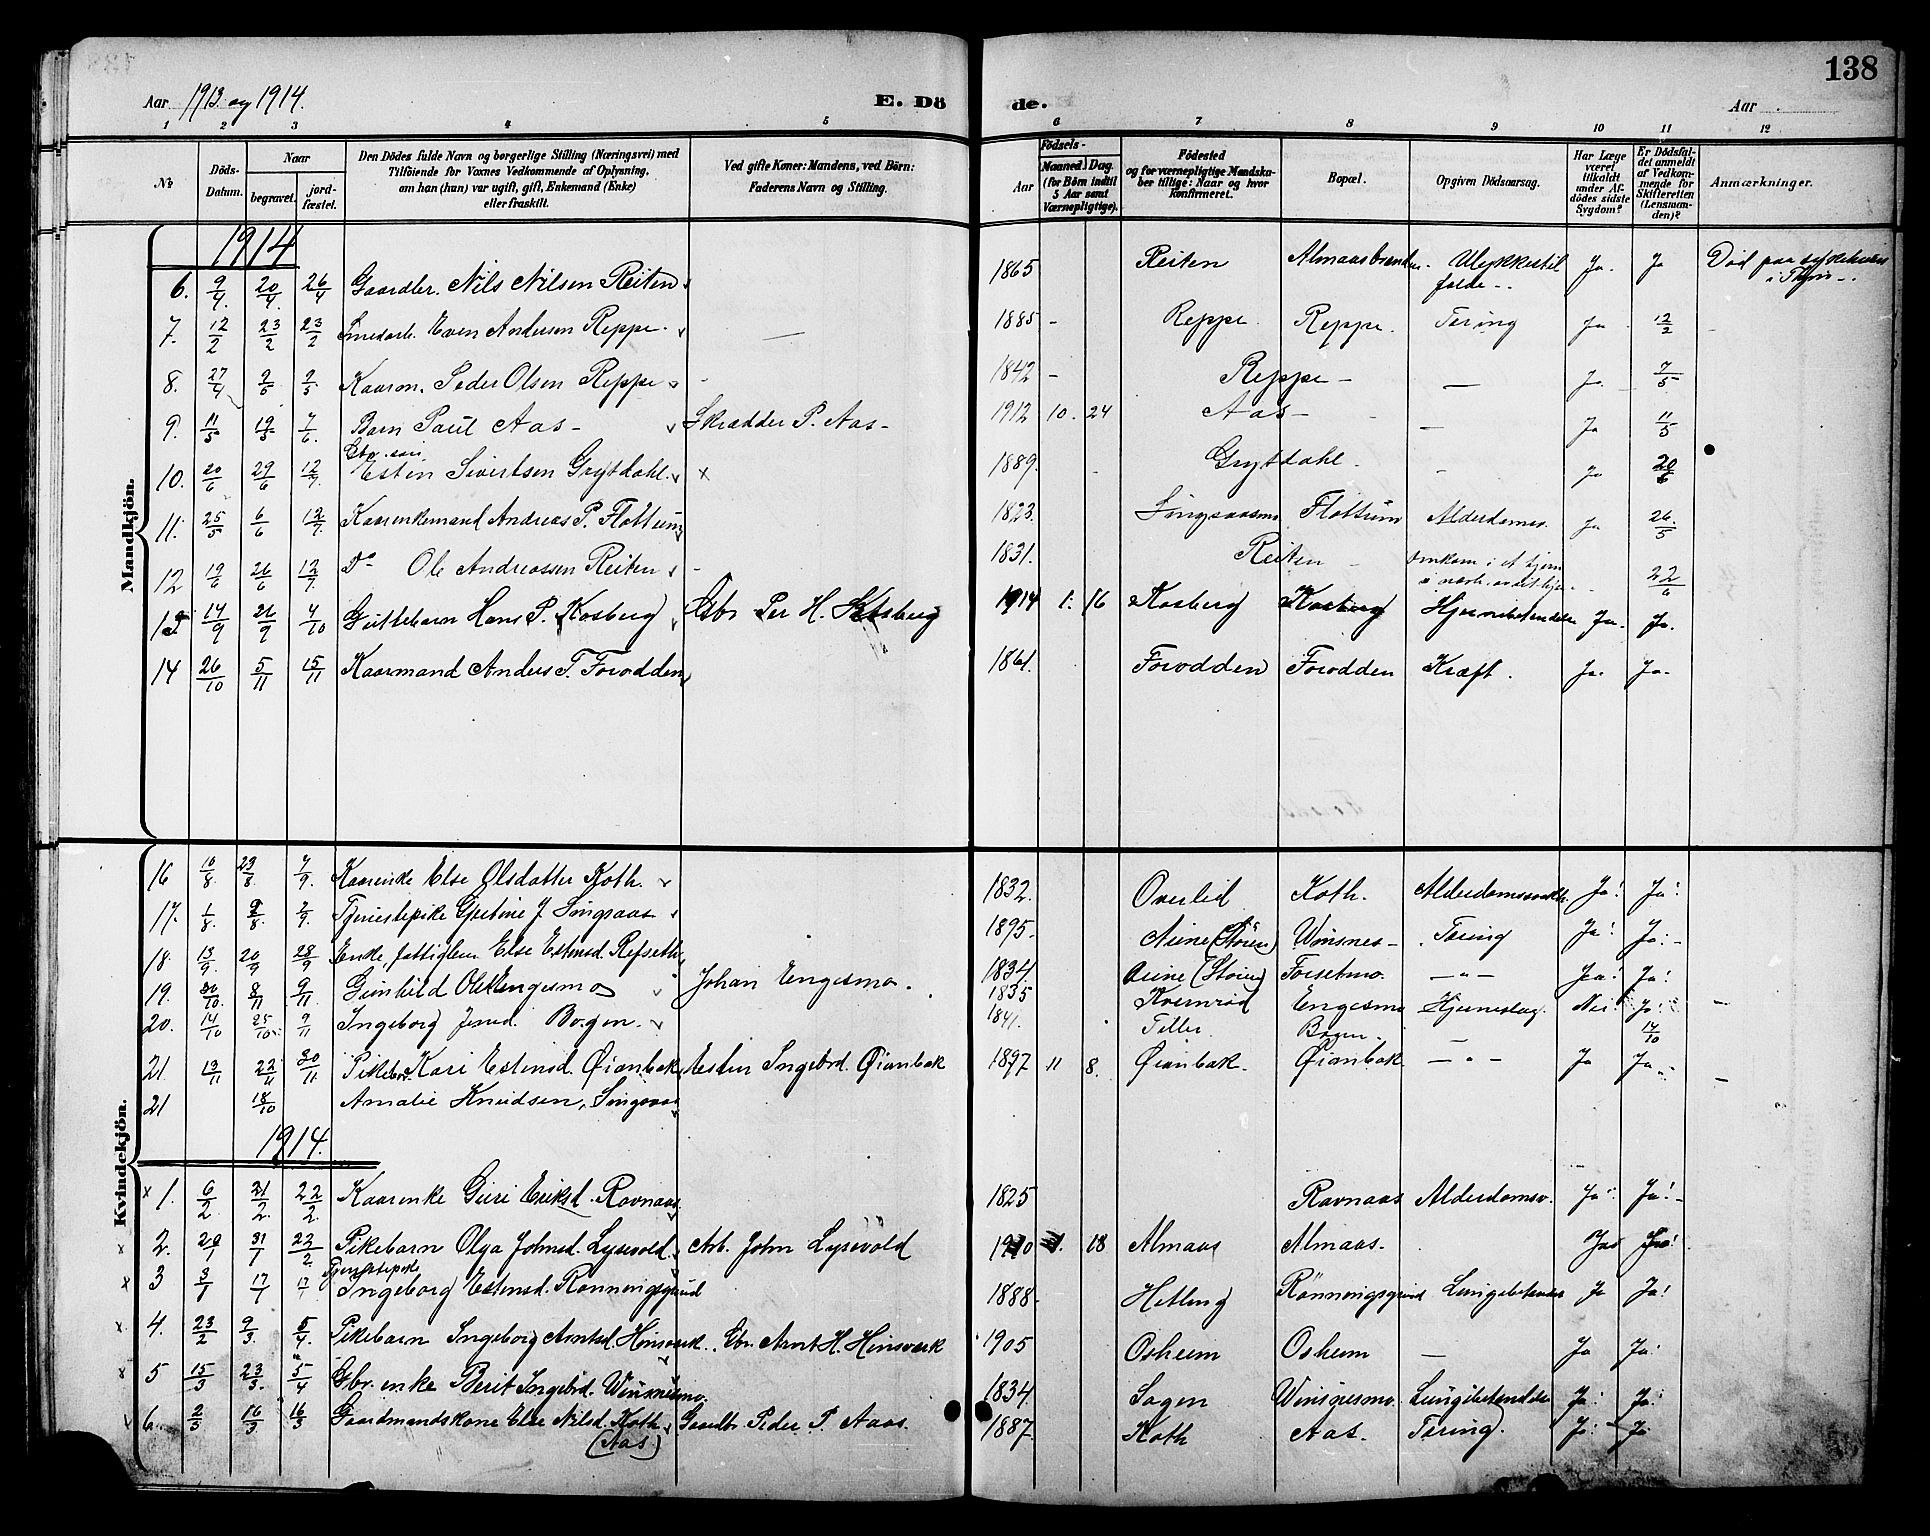 138
Aar 1913 og 1914.
E. Dö de.
Aar
1 2 3 4 5 6 7 8 9 10 11 12
No
Döds-Datum.
Naar
begravet.
jord-fæstet.
Den Dödes fulde Navn og borgerlige Stilling (Næringsvei) med
Tilföiende for Voxnes Vedkommende af Oplysning,
om han (hun) var ugift, gift, Enkemand (Enke)
eller fraskilt.
Ved gifte Koner: Mandens, ved Börn:
Faderens Navn og Stilling.
Födsels-
Aar
Maaned. Dag.
(for Börn indtil
5 Aar samt
Værnepligtige).
Födested
og for værnepligtige Mandska-
ber tillige: Naar og hvor
konfirmeret.
Bopæl.
Opgiven Dödsaarsag.
Har Læge
været
tilkaldt
under Af-
dödes sidste
Sygdom?
Er Dödsfal-
det anmeldt
af Vedkom-
mende for
Skifteretten
(Lensman-
den)?
Anmærkninger.
Mandkjön.
1914
6. 9/4 20/4 26/4 Gaardbr. Nils Nilsen Reiten 1865 Reiten Almaasbrenden. Ulykkestil Ja. Ja Död paa sykehuset
falde - i Thjm -.
7. 12/2 23/2 23/2 Smedarb. Even Andersen Reppe. — 1885 - Reppe. Reppe. Tæring Ja 12/2 -
8. 27/4 9/5 9/5 Kaarm. Peder Olsen Reppe - 1842 - Reppe - — Ja. 7/5
9. 11/5 19/5 7/6. Barn Paul Aas - Skrædder P. Aas - 1912 10. 24 Aas - — Ja 11/5
Gbr. søn
10. 20/6 29/6 12/7. Esten Sivertsen Grytdahl. x 1889. - Grytdahl. - Ja 20/6
11. 25/5 6/6 12/7 Kaarenkemand Andreas P. Flottum 1823. Singsaasmo Flottum Alderdomsv. Ja 26/5
12 19/6 26/6 12/7 Do Ole Andreassen Reiten - 1831. Reiten - Omkom i et tjern 22/6
13 14/9 21/9 4/10 Guttebarn Hans P. Kosberg Gbr Per H. Kosberg 1914 1. 16 Kosberg Kosberg Hjernebetændelse Ja. Ja.
14 26/10 5/11 15/11 Kaarmand Anders T. Forodden 1861. Forodden Forodden Kræft. Ja. Ja.
Kvindekjön.
16 10/8 23/8. 7/9. Kaarenke Else Olsdatter Koth. 1832. Overlid Koth. Alderdomssvakh. Ja! Ja!
17. 1/8 9/8. 7/9. Tjenestepike Gjertine J. Singsaas 1895. Aune (Støren) Winsnes - Tæring Ja! Ja: -
18. 13/9. 20/9 28/9 Enke, fattiglem Else Estensd. Refseth 1834 Aune (Støren) Forsetmo. — " — Ja! Ja!
19. 30/10. 8/11 9/11. Gunhild Olsd Engesmo Johan Engesmo. 1835 Kvernrød Engesmo Hjerneslag. Nei Ja! —
20. 14/10 25/10. 9/11 Ingeborg Jensd. Bogen. 1841. Teller. Bogen. — 14/10
21. 13/11 22/11 30/11 Pikebrn Kari Estensd. Øianbak Esten Ingebrd. Øianbak 1897 11 8. Øianbak. Øianbak — " — Ja Ja -
21 18/10 Amalie Knudsen, Singsaas
1914.
x 1. 6/2 21/2. 22/2. Kaarenke Guri Eriksd. Ravnaas 1825 Ravnaas Alderdomsv. Ja Ja! -
x 2. 20/1 31/1 22/2. Pikebarn Olga Johnsd. Lysvold Arb. John Lysvold 1910 18 Almaas Almaas. Ja Ja!
Tjenestepike
x 3 3/1 17/1 17/1 Ingeborg Estensd. Rønningsgrind 1888. Hetling Rønningsgrind Lungebetænd. Ja Ja!
x 4. 23/2 9/3. 5/4. Pikebarn Ingeborg Arntsd. Hinsverk. Gbr. Arnt H. Hinsverk 1905 Osheim Osheim — Ja Ja!
x 5 15/3 23/3. 5/4 Gbr. enke Berit Ingebrd. Winsnesmo. 1834. Sagen Winsnesmo. Lungebetændelse Ja! Ja!
6. 2/3 16/3 16/3 Gaardmandskone Else Nilsd. Koth Gaardbr. Peder P. Aas. 1887. Koth Aas. Tæring. Ja! Ja!
(Aas)